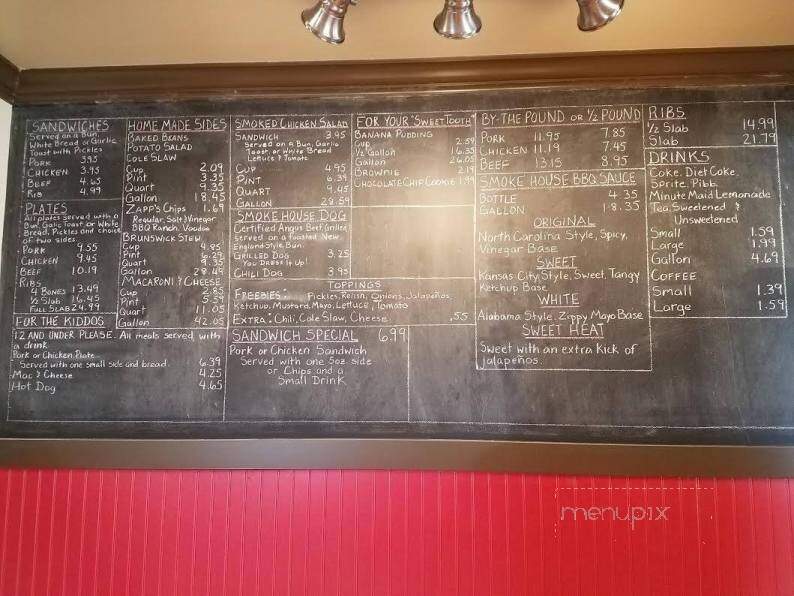 SANDWICHES
Served on a Bun,
White Bread or Garlic
Toast with Pickles
PORK 3.95
CHICKEN 3.95
BEEF 4.65
RIB 4.99
PLATES
All plates served with a
Bun, Garlic Toast or White
Bread, Pickles and choice
of two sides.
PORK 9.55
CHICKEN 9.45
BEEF 10.19
RIBS
4 BONES 13.49
½ SLAB 16.45
FULL SLAB 24.99
FOR THE KIDDOS
12 AND UNDER PLEASE. All meals served with
a drink.
Pork or Chicken Plate
Served with one small side and bread. 6.39
Mac & Cheese 4.25
Hot Dog 4.65
HOME MADE SIDES
BAKED BEANS
POTATO SALAD
COLE SLAW
Cup 2.09
Pint 3.35
Quart 9.35
Gallon 18.45
ZAPP'S Chips 1.69
Regular, Salt & Vinegar
BBQ Ranch, Voodoo
BRUNSWICK STEW
Cup 4.85
Pint 6.29
Quart 9.35
Gallon 28.49
MACARONI & CHEESE
Cup 2.85
Pint 5.39
Quart 11.05
Gallon 42.05
SMOKED CHICKEN SALAD
SANDWICH 3.95
Served on a Bun, Garlic
Toast, or White Bread
Lettuce & Tomato
CUP 4.95
PINT 6.39
QUART 9.45
GALLON 28.59
SMOKE HOUSE DOG
Certified Angus Beef Grilled,
served on a Toasted New
England Style Bun.
GRILLED DOG 3.25
YOU DRESS IT UP!
CHILI DOG 3.95
TOPPINGS
FREEBIES: Pickles, Relish, Onions, Jalapeños,
Ketchup, Mustard, Mayo, Lettuce, Tomato
EXTRA: Chili, Cole Slaw, Cheese .55
SANDWICH SPECIAL 6.99
Pork or Chicken Sandwich
Served with one 5oz side
or Chips and a
Small Drink
FOR YOUR "SWEET TOOTH"
BANANA PUDDING
Cup 2.59
½ Gallon 16.35
Gallon 26.05
BROWNIE 2.19
CHOCOLATE CHIP COOKIE 1.99
BY-THE POUND OR ½ POUND
PORK 11.95 7.85
CHICKEN 11.19 7.45
BEEF 13.15 8.95
SMOKE HOUSE BBQ SAUCE
BOTTLE 4.35
GALLON 18.35
ORIGINAL
North Carolina Style, Spicy,
Vinegar Base
SWEET
Kansas City Style, Sweet, Tangy
Ketchup Base
WHITE
Alabama Style, Zippy Mayo Base
SWEET HEAT
Sweet with an extra kick of
jalapeños.
RIBS
½ Slab 14.99
Slab 21.79
DRINKS
Coke, Diet Coke,
Sprite, Pibb,
Minute Maid Lemonade
Tea, Sweetened &
Unsweetened
Small 1.59
Large 1.99
Gallon 4.69
COFFEE
Small 1.39
Large 1.59
menupix